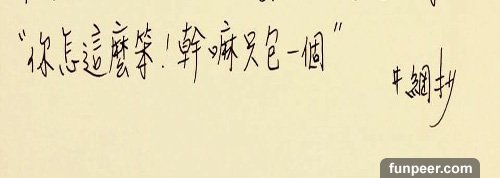 “你怎這麼笨！幹嘛只包一個”
#網抄
funpeer.com